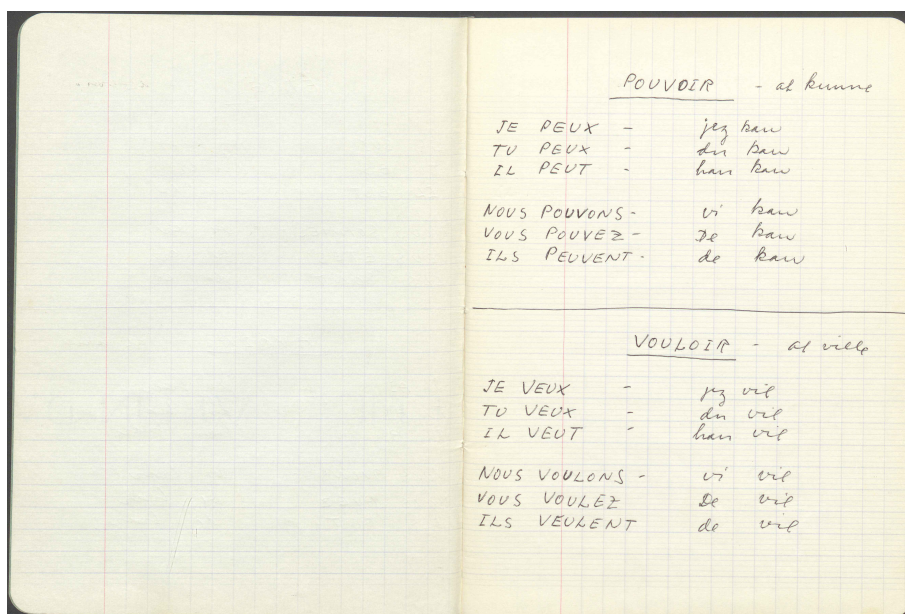 POUVOIR - at kunne
JE PEUX - jeg kan
TU PEUX - du kan
IL PEUT - han kan
NOUS POUVONS - vi kan
VOUS POUVEZ - De kan
ILS PEUVENT - de kan
VOULOIR - at ville
JE VEUX - jeg vil
TU VEUX - du vil
IL VEUT - han vil
NOUS VOULONS - vi vil
VOUS VOULEZ De vil
ILS VEULENT de vil